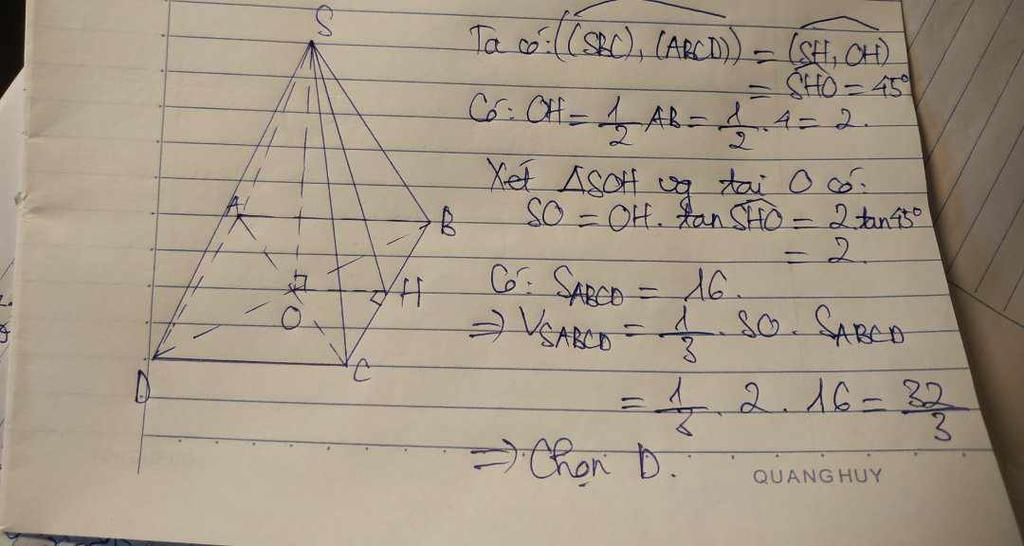 S
A
B
O
H
D
C
Ta có: ((SBC), (ABCD)) = (SH, OH)
= SHO = 45°
Có: OH = 1/2 AB = 1/2 . 4 = 2.
Xét ΔSOH vg tại O có:
SO = OH. tan SHO = 2.tan45°
= 2.
Có: S_ABCD = 16.
=> V_SABCD = 1/3 . SO . S_ABCD
= 1/3 . 2 . 16 = 32/3
=> Chọn D.
QUANG HUY